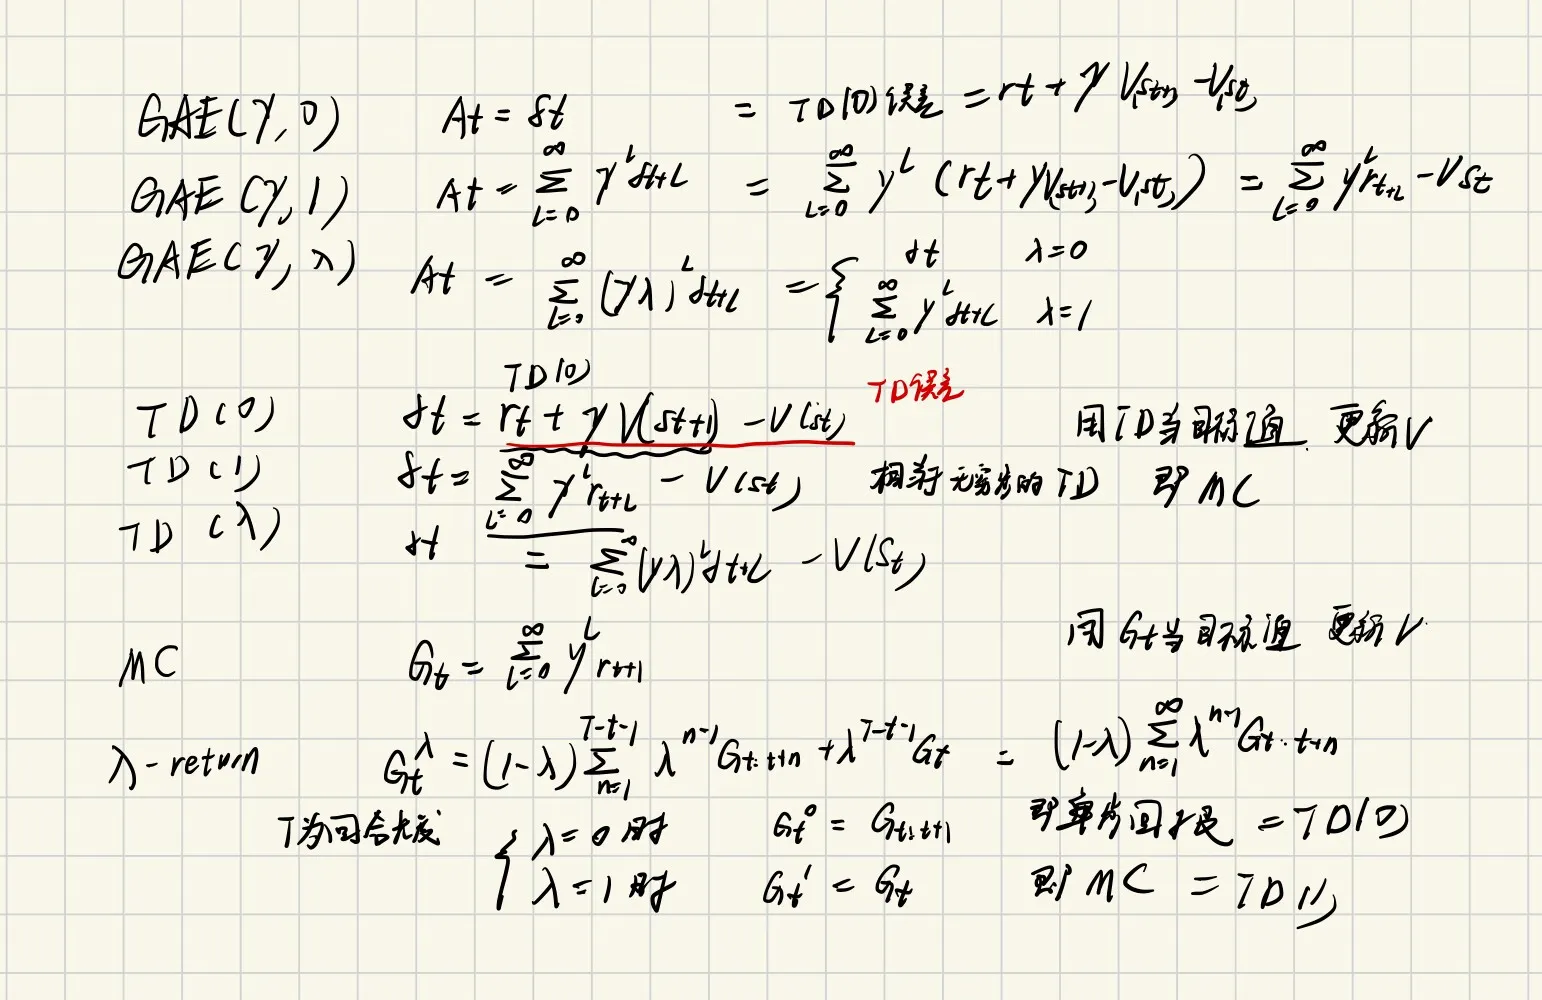 GAE(γ,0) At = δt = TD(0)误差 = rt + γV(st+1) - V(st)
GAE(γ,1) At = ∑_{L=0}^{∞} γ^L δt+L = ∑_{L=0}^{∞} γ^L (rt + γV(st+1) - V(st)) = ∑_{L=0}^{∞} γ^L r_{t+L} - Vst
GAE(γ,λ) At = ∑_{L=0}^{∞} (γλ)^L δt+L = { δt λ=0
∑_{L=0}^{∞} γ^L δt+L λ=1
TD(0)
TD(0) δt = rt + γV(st+1) - V(st) TD误差 用TD当目标值 更新V
TD(1) δt = ∑_{L=0}^{∞} γ^L r_{t+L} - V(st) 相当于无穷步的TD 即MC
TD(λ) δt = ∑_{L=0}^{∞} (γλ)^L δt+L - V(St)
MC Gt = ∑_{L=0}^{∞} γ^L r_{t+1} 用Gt当目标值 更新V
λ-return G_t^λ = (1-λ) ∑_{n=1}^{T-t-1} λ^{n-1} G_{t:t+n} + λ^{T-t-1} Gt = (1-λ) ∑_{n=1}^{∞} λ^{n-1} G_{t:t+n}
T为回合长度 { λ=0时 Gt^0 = G_{t:t+1} 即单步回报 = TD(0)
λ=1时 Gt^1 = Gt 即MC = TD(1)